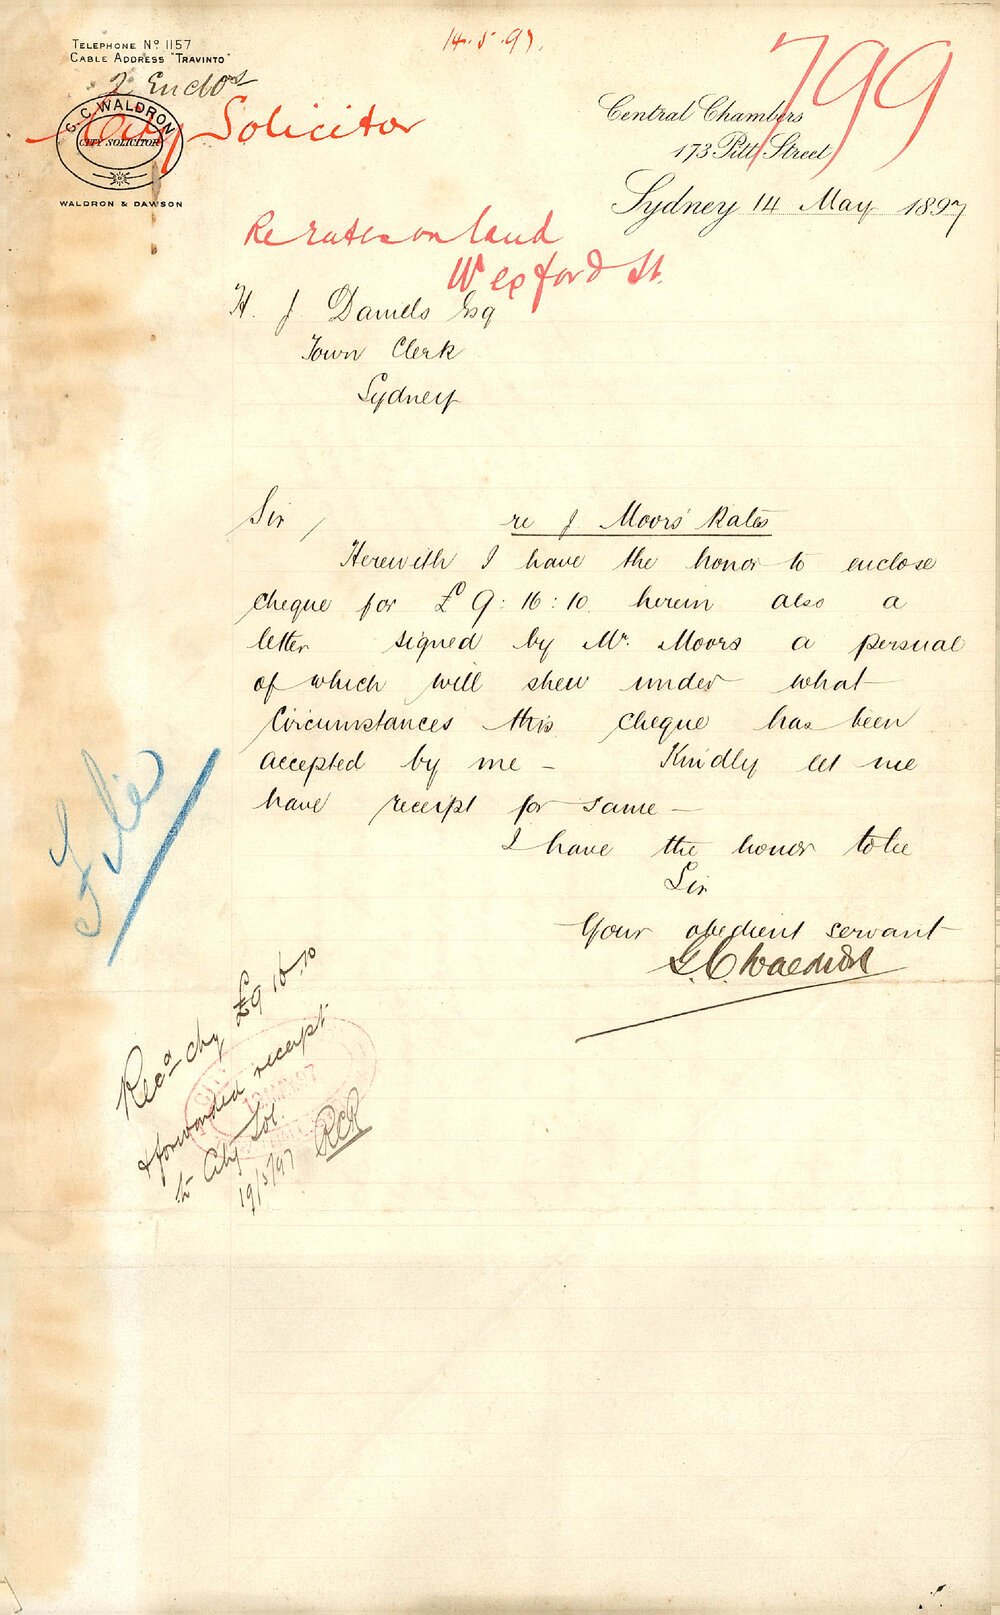 TELEPHONE Nº 1157
CABLE ADDRESS "TRAVINTO"
14.5.97.
799
2 Enclos
G. C. WALDRON
CITY SOLICITOR
City Solicitor
WALDRON & DAWSON
Central Chambers
173 Pitt Street
Sydney 14 May 1897
Re rates on land
Wexford St.
H. J. Daniels Esq
Town Clerk
Sydney
Sir, re J Moors' Rates
Herewith I have the honor to enclose
cheque for £9:16:10 herein also a
letter signed by Mr. Moors a persual
of which will shew under what
Circumstances this cheque has been
accepted by me – Kindly let me
have receipt for same –
I have the honor to be
Sir
Your obedient servant
G. C. Waldron
File
Recd chq £9.16.10
& forwarded receipt
to City Sol.
19/5/97 RCR